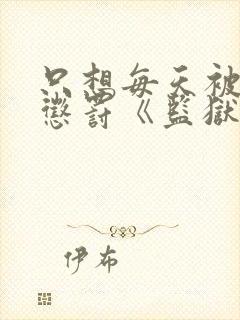 只想每天被
懲罰《監獄
伊布